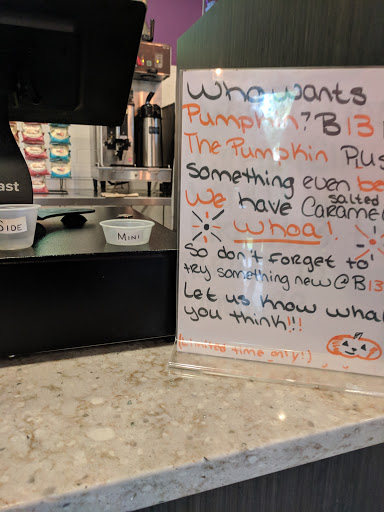 Who wants
Pumpkin? B13
The Pumpkin Plus
something even be
We have salted Caramel
whoa!
So don't forget to
try something new @B13
Let us know what
you think!!!
(limited time only!)
ast
SIDE
MINI